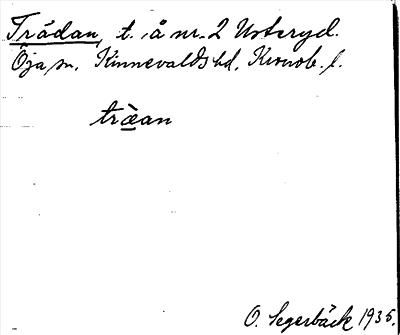 Trädan, t. å nr. 2 Usteryd.
Öja sn, Kinnevalds hd, Kronob. l.
træ̀an
O. Segerbäck 1935.